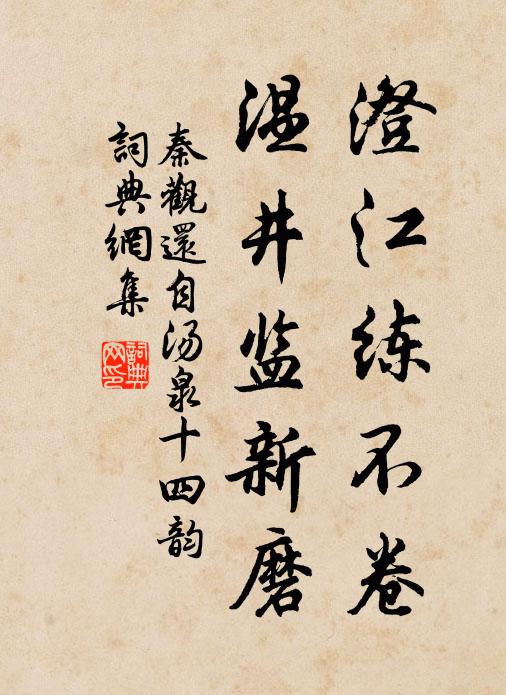 澄江练不卷
温井监新磨
秦觀還自汤泉十四韵
詞典網集
詞典
网印